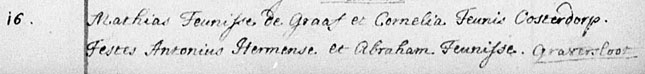 16. Mathias Teunisse de Graaf et Cornelia Teunis Oosterdorp.
Testes Antonius Hermense et Abraham Teunisse. Gravensloot